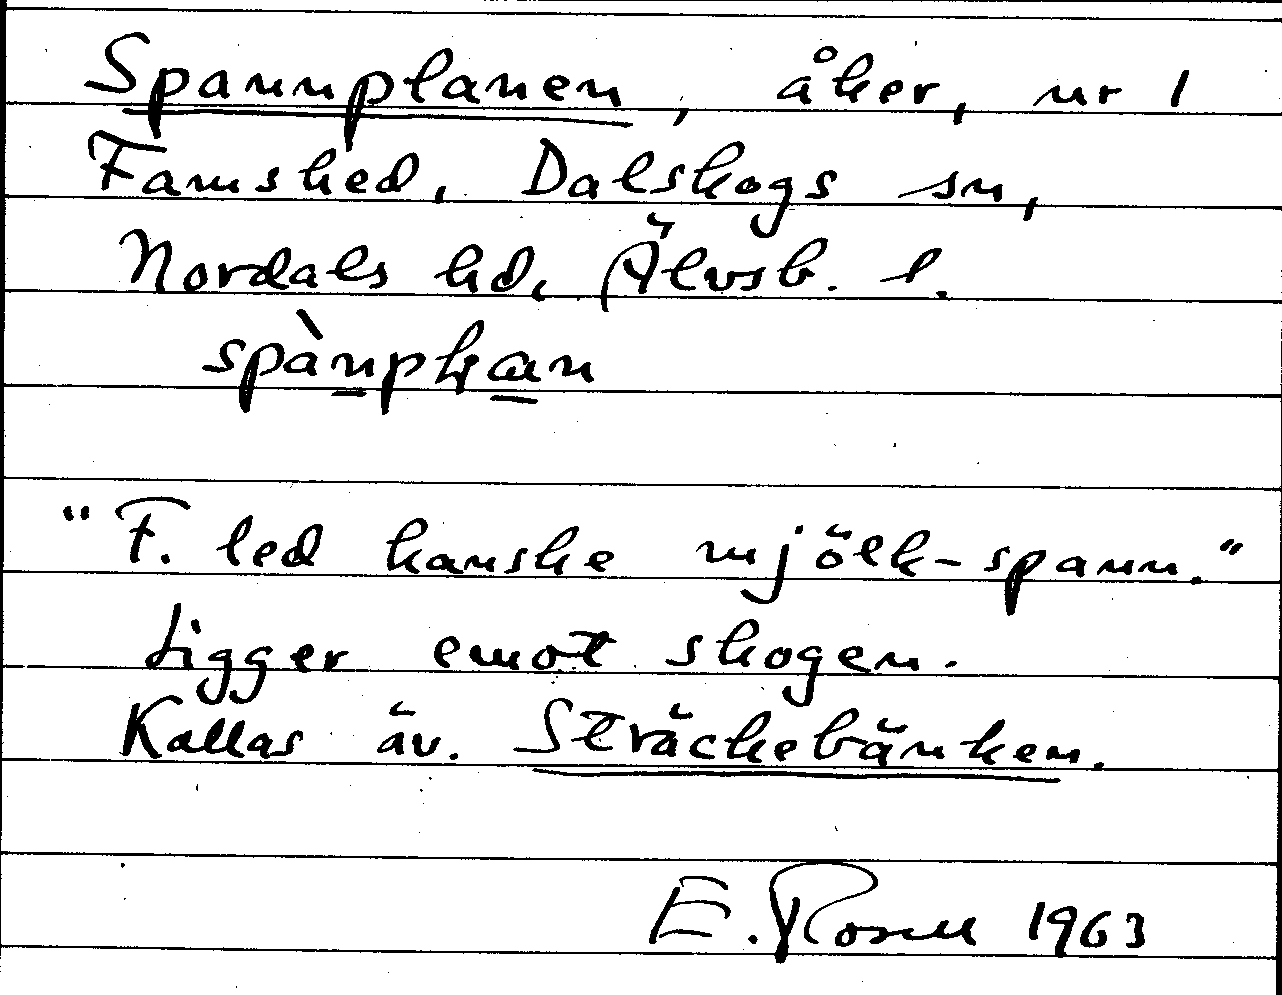 Spannplanen, åker, nr 1
Famshed, Dalskogs sn,
Nordals hd, Älvsb. l.
"F. led kanske mjölk-spann."
Ligger emot skogen.
Kallas äv. Sträckebänken.
E. Rosell 1963